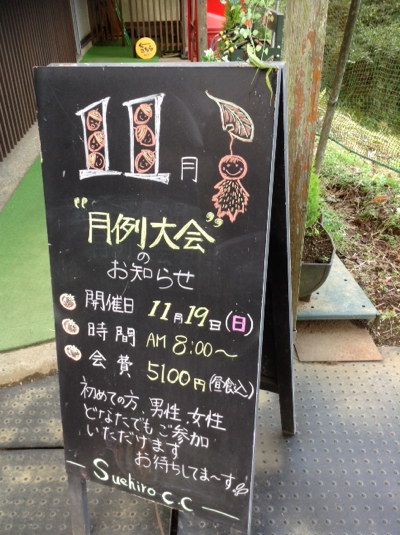 11月
“月例大会”
の
お知らせ
開催日 11月19日(日)
時間 AM 8:00〜
会費 5100円(昼食込)
初めての方、男性、女性
どなたでもご参加
いただけます
お待ちしてま〜す
— Suehiro C.C —